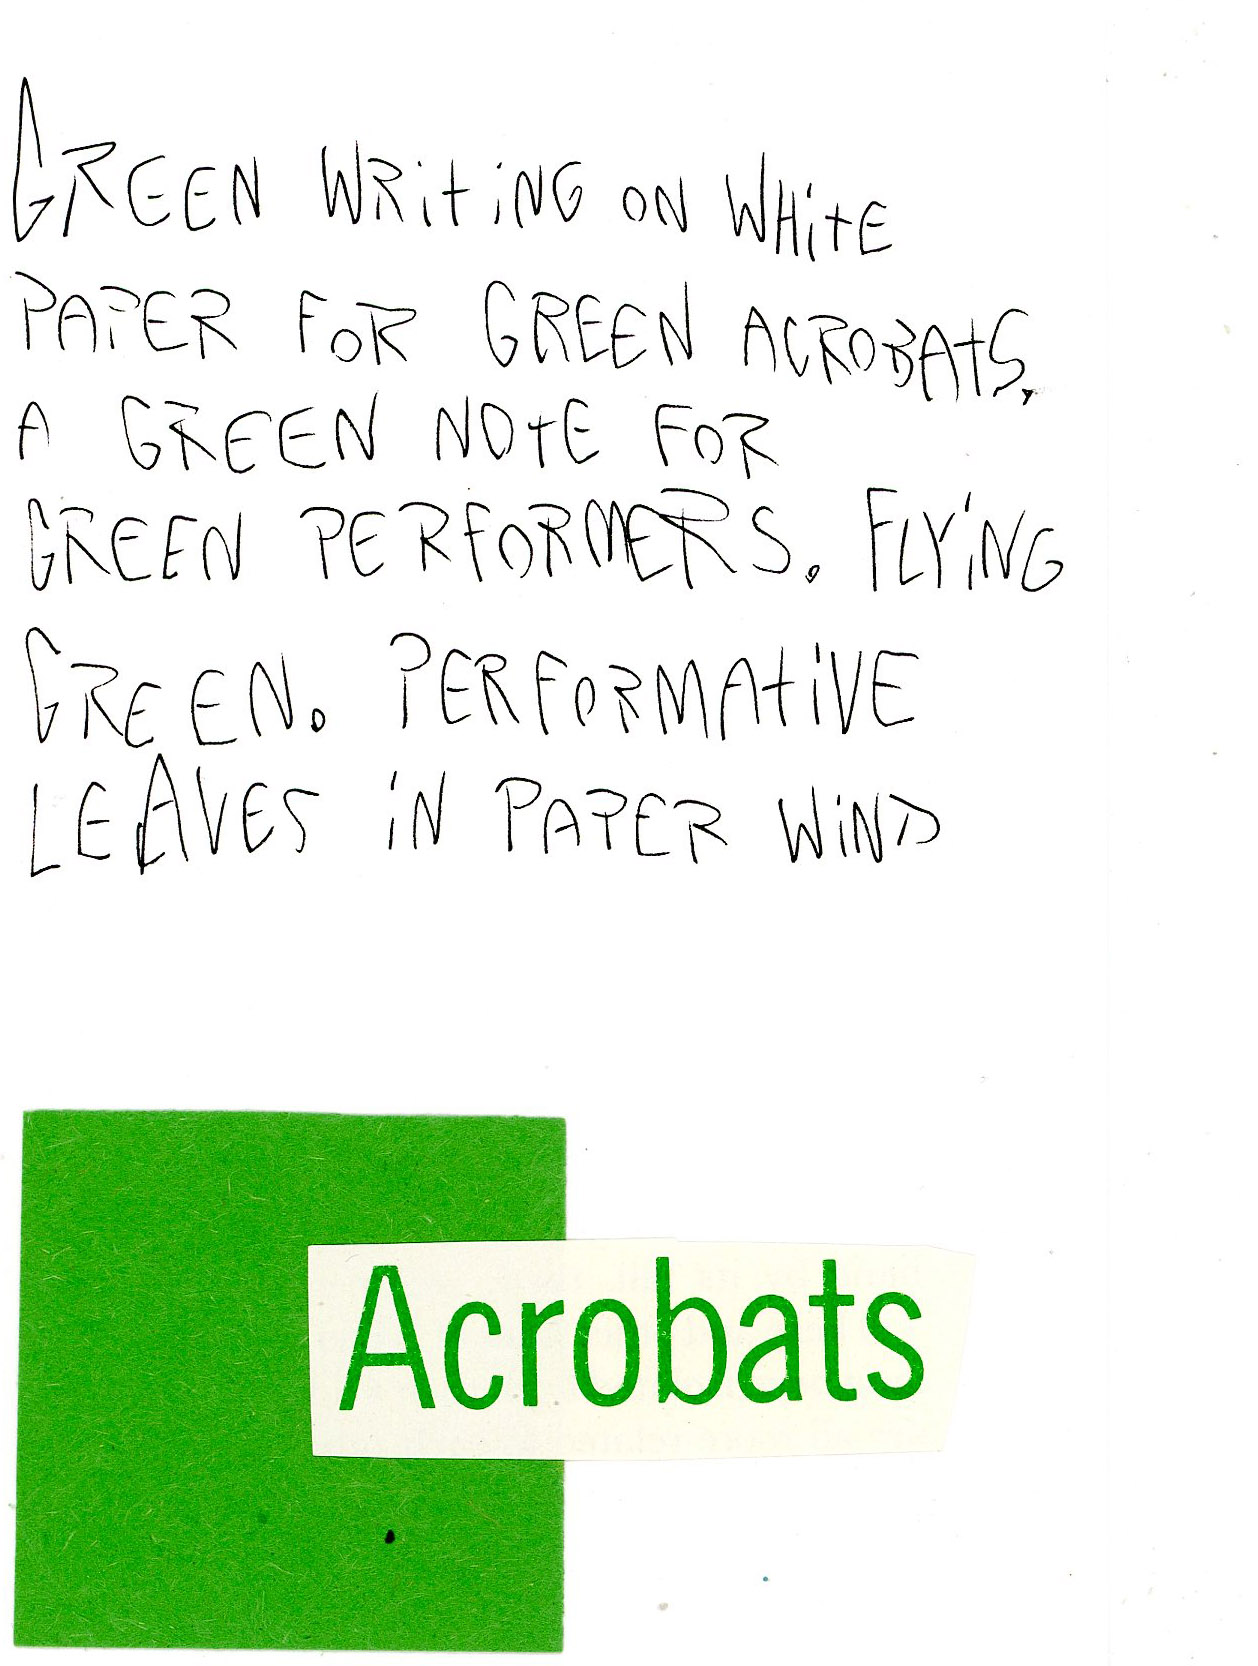 GREEN WRitiNG ON WHitE
PAPER FOR GREEN ACROBAtS.
A GREEN NOtE FOR
GREEN PERFORMERS. FLYiNG
GREEN. PERFORMAtiVE
LEAVES iN PAPER WiND
Acrobats